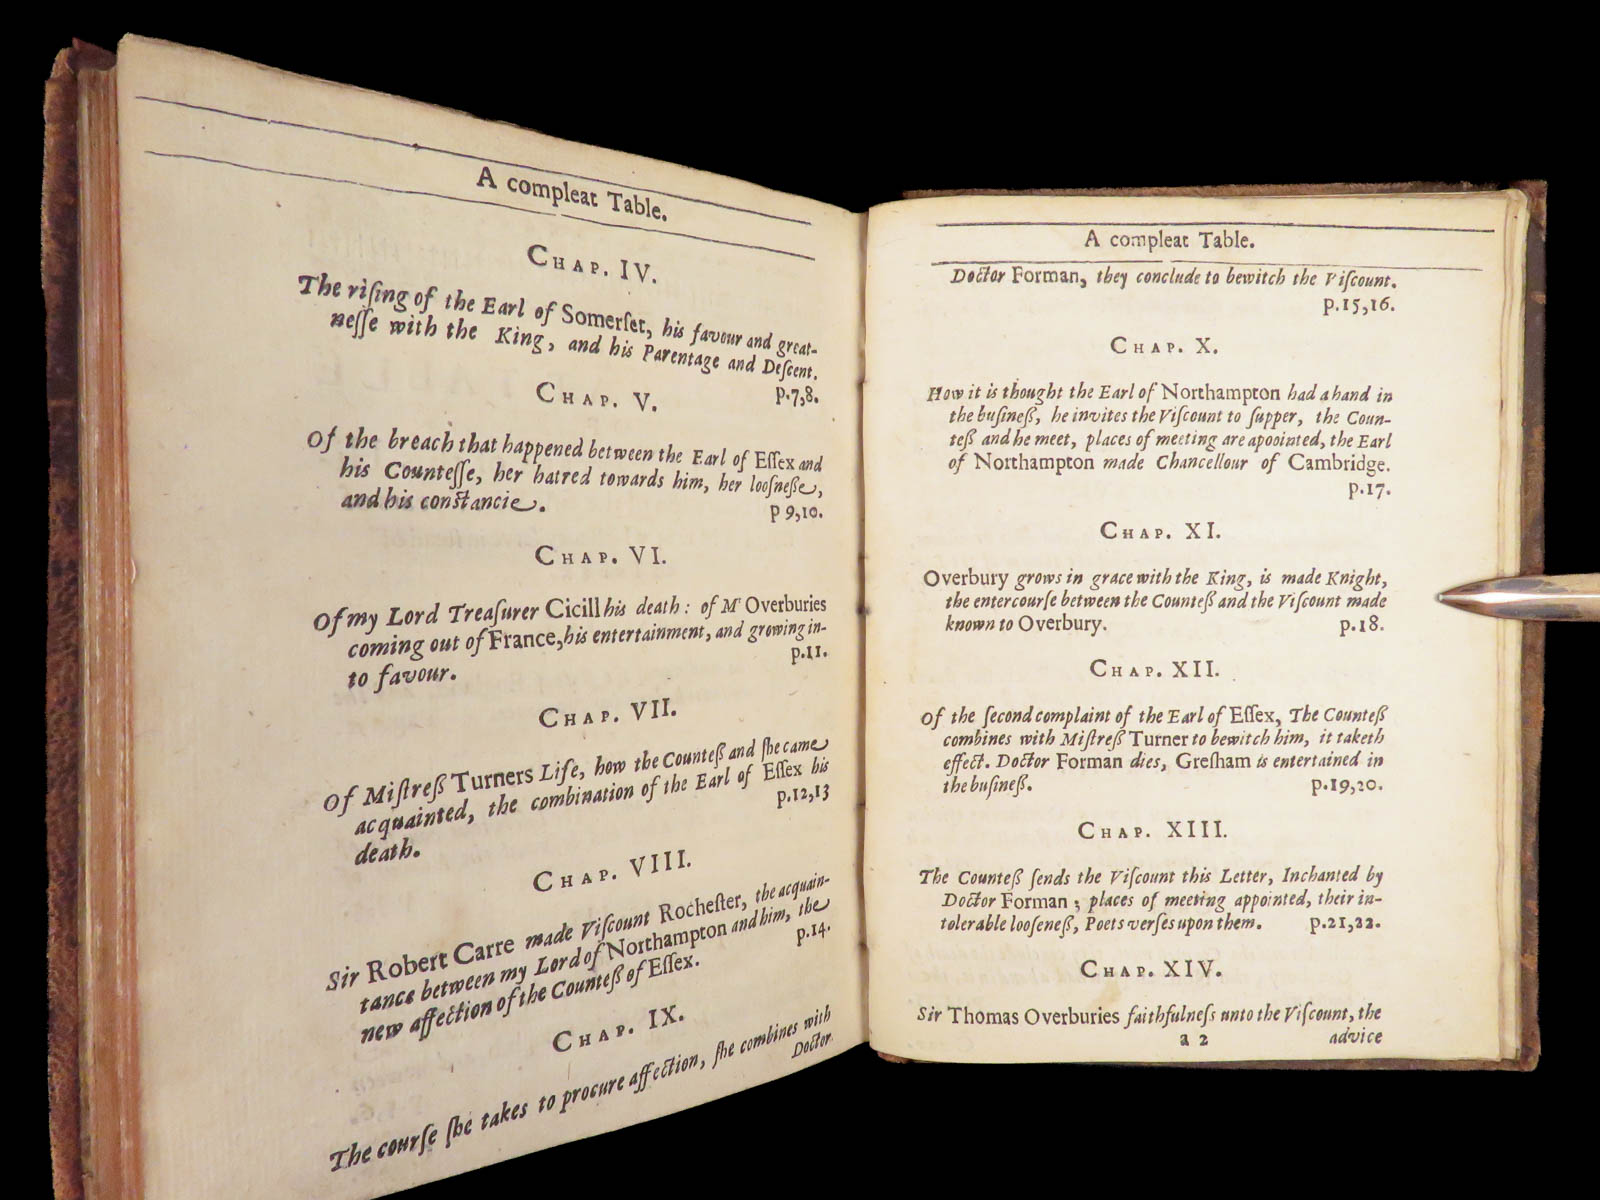 A compleat Table.
CHAP. IV.
The riſing of the Earl of Somerſet, his favour and great-
neſſe with the King, and his Parentage and Deſcent.
p.7,8.
CHAP. V.
Of the breach that happened between the Earl of Eſſex and
his Counteſſe, her hatred towards him, her looſneße,
and his constancie. p 9,10.
CHAP. VI.
Of my Lord Treaſurer Cicill his death: of Mr Overburies
coming out of France, his entertainment, and growing in-
to favour. p.11.
CHAP. VII.
Of Miſtreß Turners Life, how the Counteß and ſhe came
acquainted, the combination of the Earl of Eſſex his
death. p.12,13
CHAP. VIII.
Sir Robert Carre made Viſcount Rocheſter, the acquain-
tance between my Lord of Northampton and him, the
new affection of the Counteß of Eſſex. p.14.
CHAP. IX.
The courſe ſhe takes to procure affection, ſhe combines with
Doctor
A compleat Table.
Doctor Forman, they conclude to bewitch the Viſcount.
p.15,16.
CHAP. X.
How it is thought the Earl of Northampton had a hand in
the buſineß, he invites the Viſcount to ſupper, the Coun-
teß and he meet, places of meeting are apointed, the Earl
of Northampton made Chancellour of Cambridge.
p.17.
CHAP. XI.
Overbury grows in grace with the King, is made Knight,
the entercourſe between the Counteß and the Viſcount made
known to Overbury. p.18.
CHAP. XII.
Of the ſecond complaint of the Earl of Eſſex, The Counteß
combines with Miſtreß Turner to bewitch him, it taketh
effect. Doctor Forman dies, Greſham is entertained in
the buſineß. p.19,20.
CHAP. XIII.
The Counteß ſends the Viſcount this Letter, Inchanted by
Doctor Forman; places of meeting appointed, their in-
tolerable looſeneß, Poets verſes upon them. p.21,22.
CHAP. XIV.
Sir Thomas Overburies faithfulneſs unto the Viſcount, the
a 2 advice